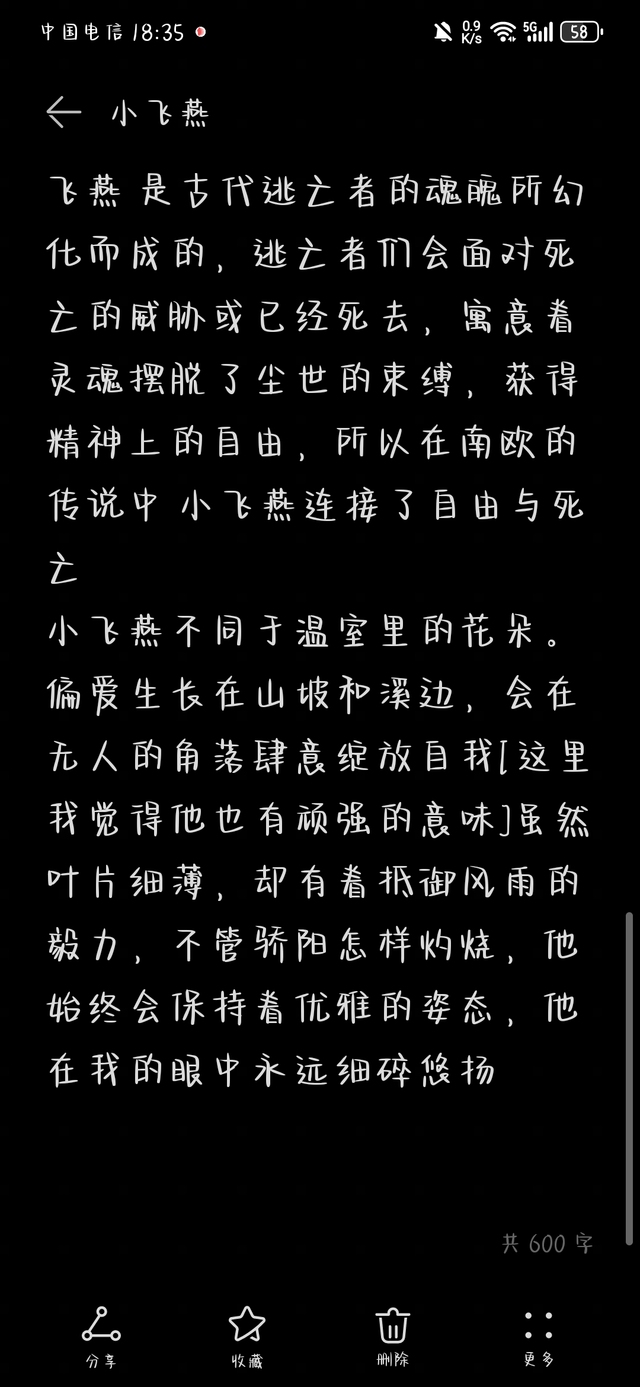 中国电信 18:35 0.9 K/s 5G 58
小飞燕
飞燕 是古代逃亡者的魂魄所幻
化而成的，逃亡者们会面对死
亡的威胁或已经死去，寓意着
灵魂摆脱了尘世的束缚，获得
精神上的自由，所以在南欧的
传说中 小飞燕连接了自由与死
亡
小飞燕不同于温室里的花朵。
偏爱生长在山坡和溪边，会在
无人的角落肆意绽放自我[这里
我觉得他也有顽强的意味]虽然
叶片细薄，却有着抵御风雨的
毅力，不管骄阳怎样灼烧，他
始终会保持着优雅的姿态，他
在我的眼中永远细碎悠扬
共 600 字
分享 收藏 删除 更多